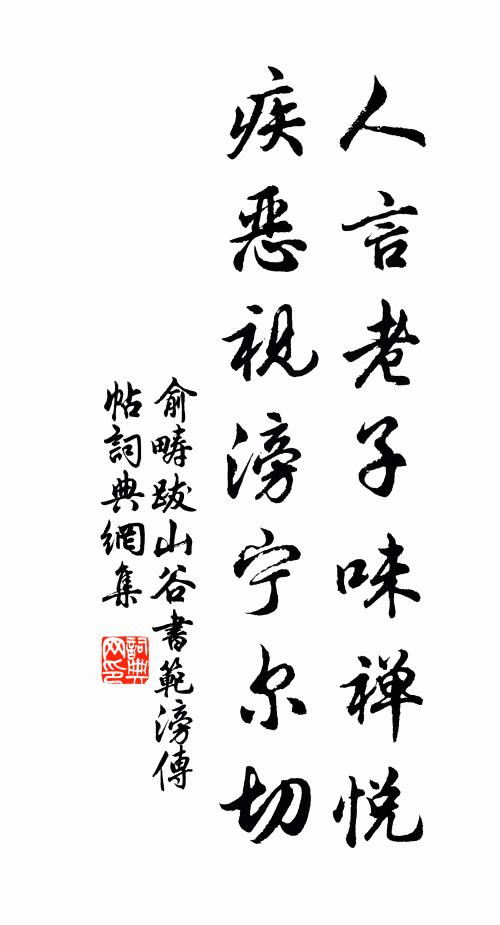 人言老子味禅悦
疾恶视滂宁尔切
俞疇跋山谷書範滂傳
帖詞典網集
詞典
网印